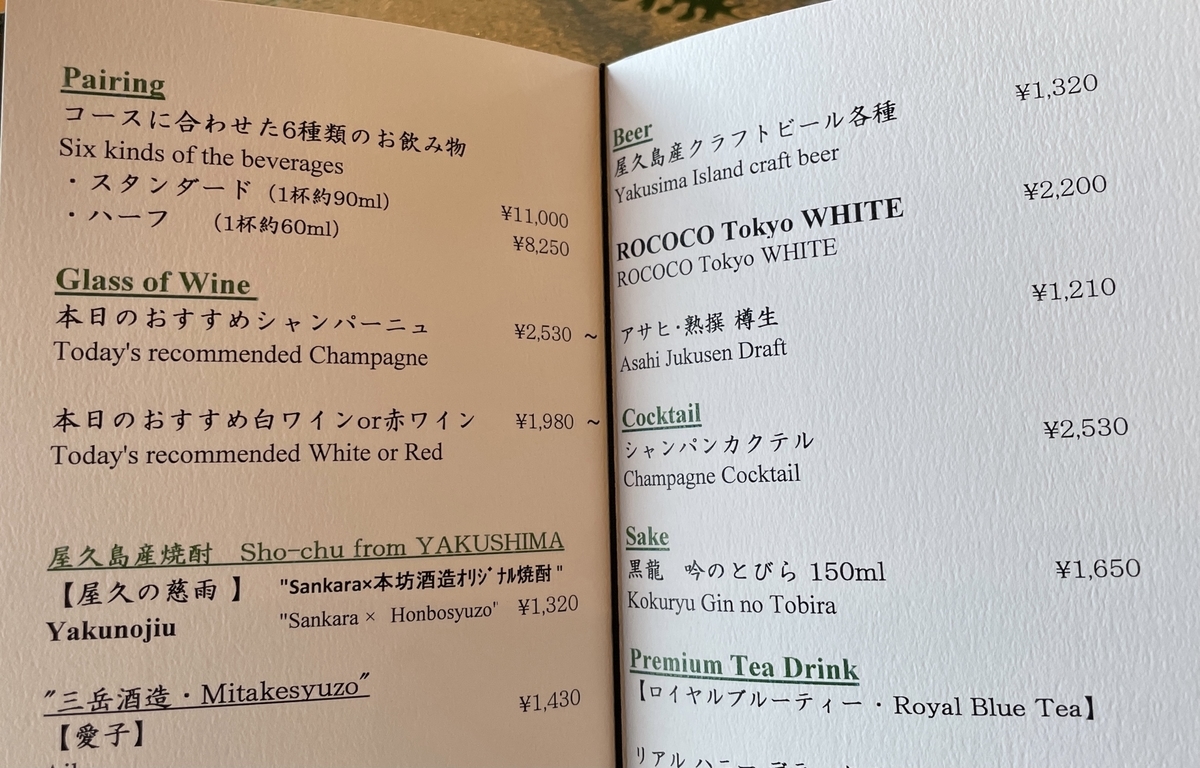 Pairing
コースに合わせた6種類のお飲み物
Six kinds of the beverages
・スタンダード（1杯約90ml） ¥11,000
・ハーフ （1杯約60ml） ¥8,250
Glass of Wine
本日のおすすめシャンパーニュ ¥2,530 ~
Today's recommended Champagne
本日のおすすめ白ワインor赤ワイン ¥1,980 ~
Today's recommended White or Red
屋久島産焼酎 Sho-chu from YAKUSHIMA
【屋久の慈雨 】 "Sankara×本坊酒造ｵﾘｼﾞﾅﾙ焼酎"
Yakunojiu "Sankara × Honbosyuzo" ¥1,320
"三岳酒造・Mitakesyuzo" ¥1,430
【愛子】
Beer ¥1,320
屋久島産クラフトビール各種
Yakusima Island craft beer
ROCOCO Tokyo WHITE ¥2,200
ROCOCO Tokyo WHITE
アサヒ・熟撰 樽生 ¥1,210
Asahi Jukusen Draft
Cocktail
シャンパンカクテル ¥2,530
Champagne Cocktail
Sake
黒龍 吟のとびら 150ml ¥1,650
Kokuryu Gin no Tobira
Premium Tea Drink
【ロイヤルブルーティー・Royal Blue Tea】
リアル